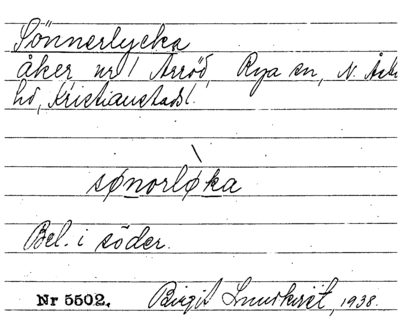 Sönnerlycka
åker, nr 1 Arröd, Rya sn, N. Åsbo
hd, Kristianstads l.
sønorlỳka
Bel. i söder.
Nr 5502. Birgit Lundkvist, 1938.